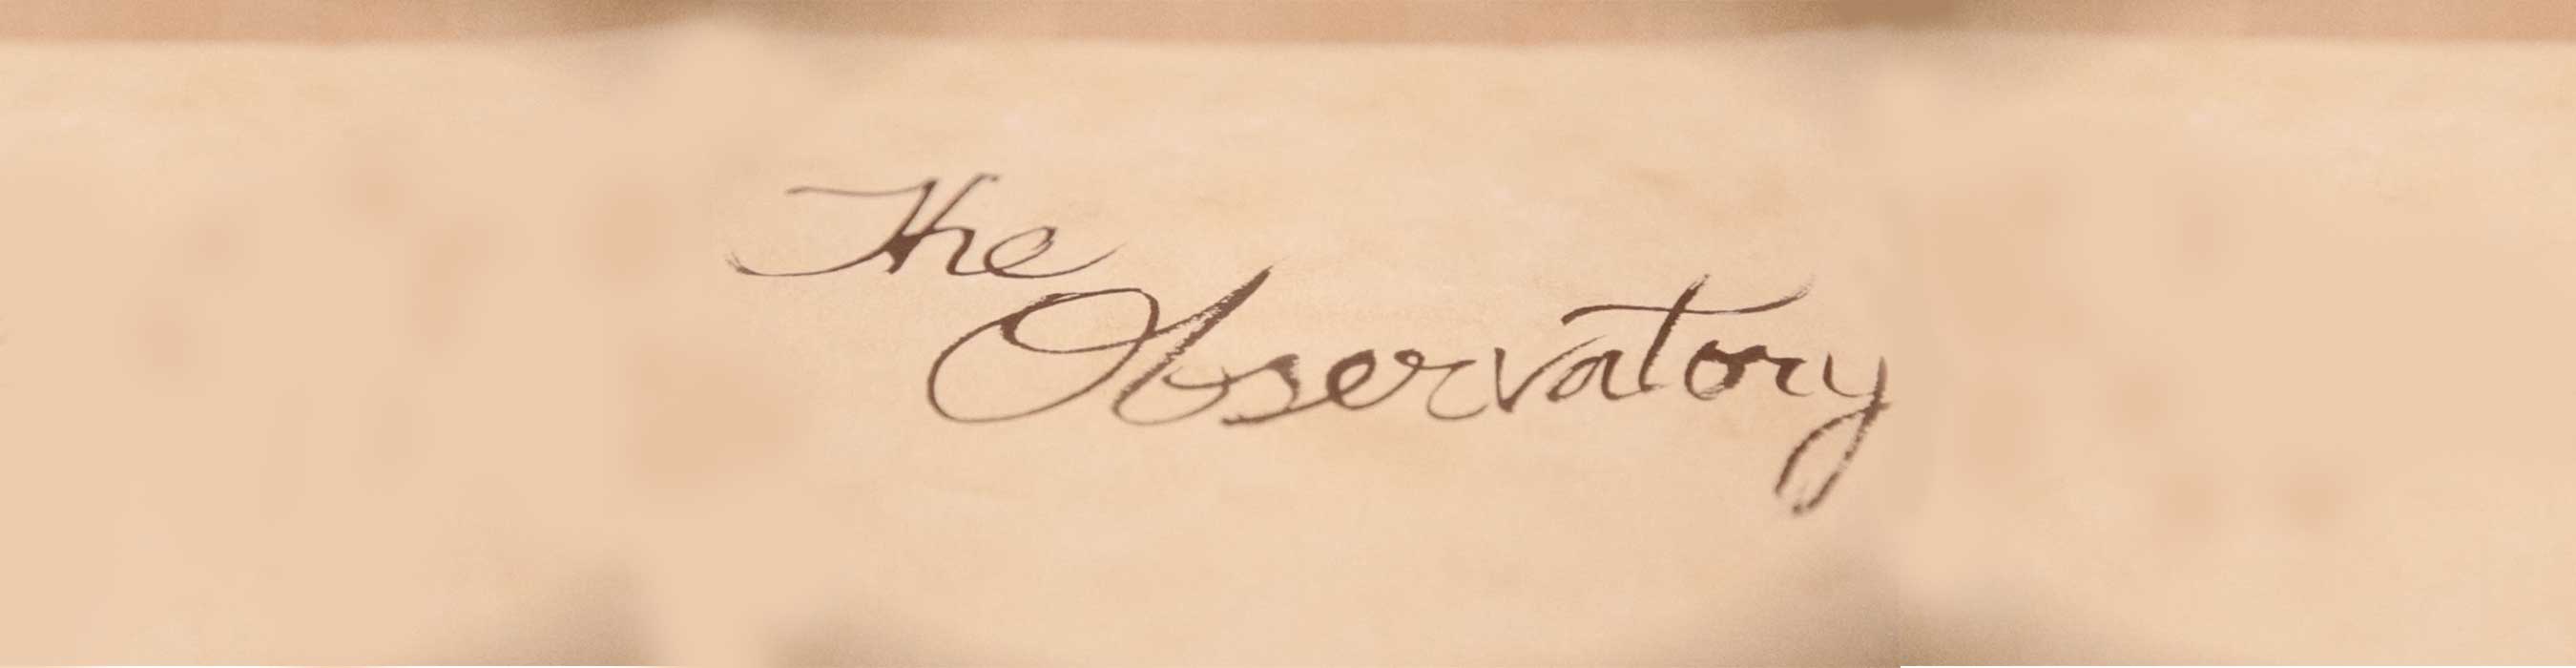 The
Observatory